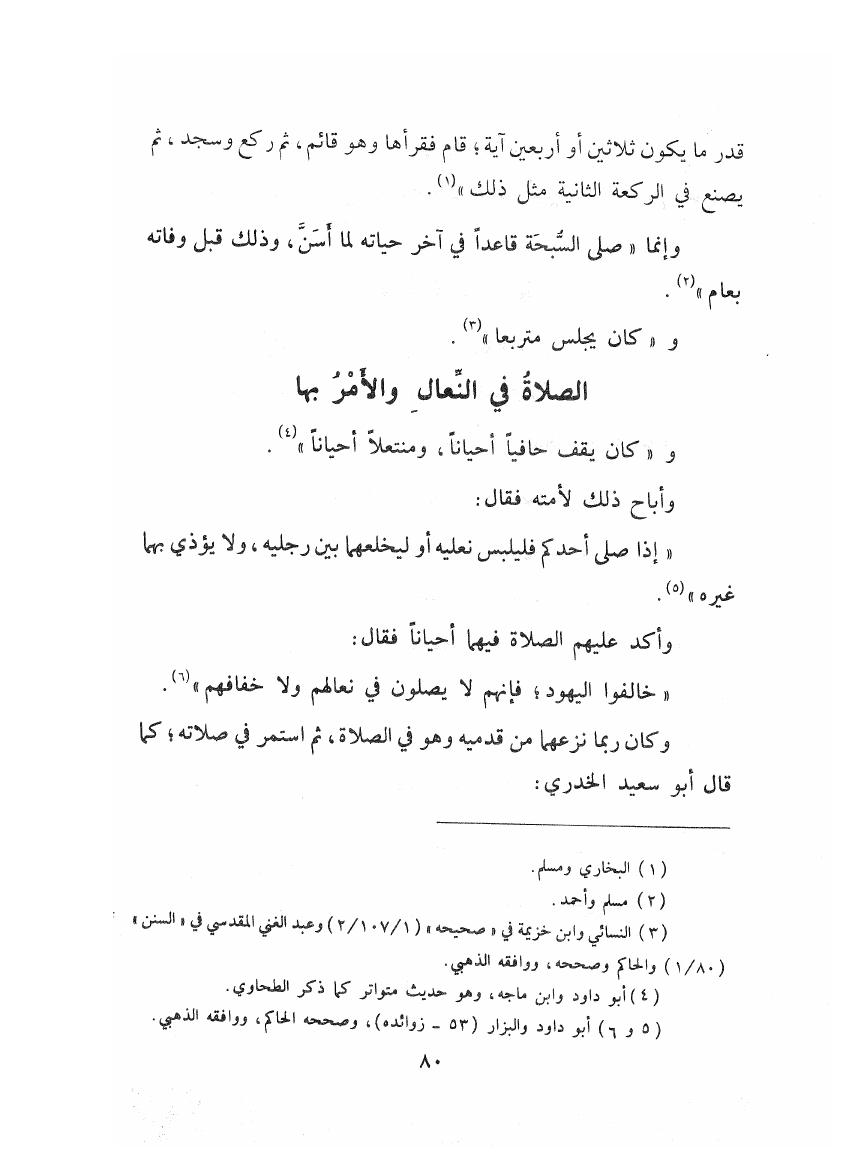 قدر ما يكون ثلاثين أو أربعين آية ؛ قام فقرأها وهو قائم ، ثم ركع وسجد ، ثم
يصنع في الركعة الثانية مثل ذلك »(١) .
وإنما « صلى السُّبحَة قاعداً في آخر حياته لما أَسَنَّ ، وذلك قبل وفاته
بعام »(٢) .
و « كان يجلس متربعا »(٣) .
الصلاةُ في النِّعالِ والأَمْرُ بها
و « كان يقف حافياً أحياناً ، ومنتعلاً أحياناً »(٤) .
وأباح ذلك لأمته فقال :
« إذا صلى أحدكم فليلبس نعليه أو ليخلعهما بين رجليه ، ولا يؤذي بهما
غيره »(٥) .
وأكد عليهم الصلاة فيهما أحياناً فقال :
« خالفوا اليهود ؛ فإنهم لا يصلون في نعالهم ولا خفافهم »(٦) .
وكان ربما نزعهما من قدميه وهو في الصلاة ، ثم استمر في صلاته ؛ كما
قال أبو سعيد الخدري :
(١) البخاري ومسلم .
(٢) مسلم وأحمد .
(٣) النسائي وابن خزيمة في « صحيحه » (٢/١٠٧/١) وعبد الغني المقدسي في « السنن »
(١/٨٠) والحاكم وصححه ، ووافقه الذهبي .
(٤) أبو داود وابن ماجه ، وهو حديث متواتر كما ذكر الطحاوي .
(٥ و ٦) أبو داود والبزار (٥٣ - زوائده) ، وصححه الحاكم ، ووافقه الذهبي .
٨٠